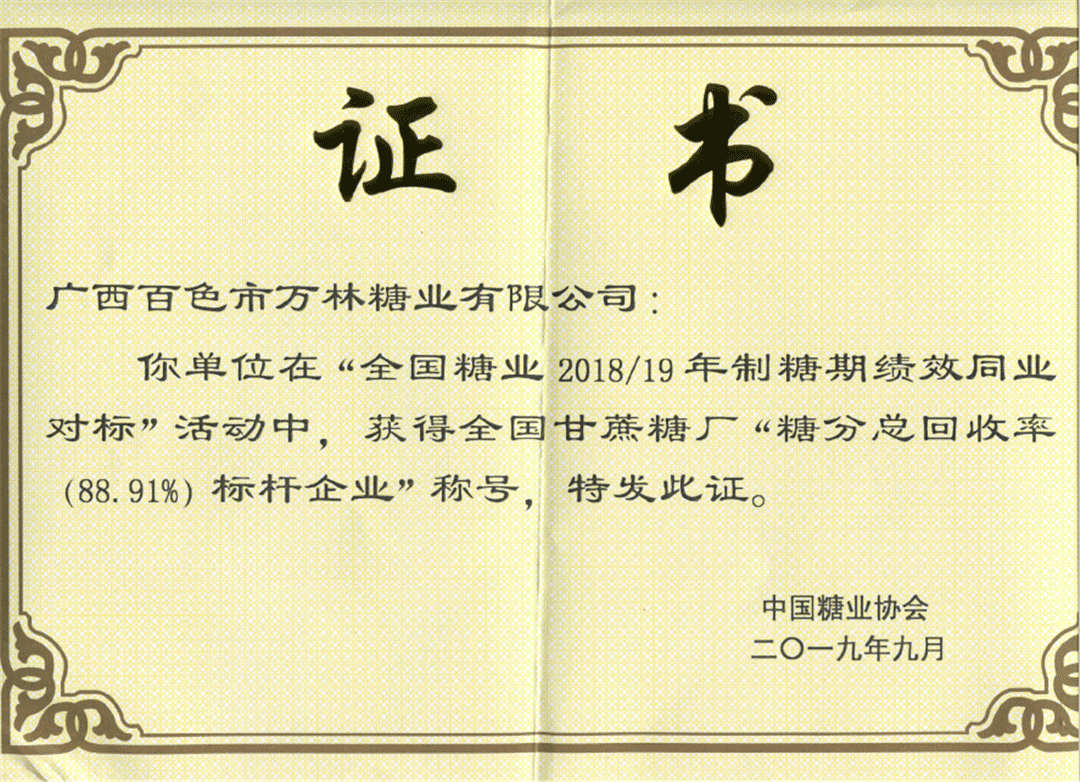 证书
广西百色市万林糖业有限公司：
你单位在“全国糖业2018/19年制糖期绩效同业
对标”活动中，获得全国甘蔗糖厂“糖分总回收率
(88.91%)标杆企业”称号，特发此证。
中国糖业协会
二〇一九年九月